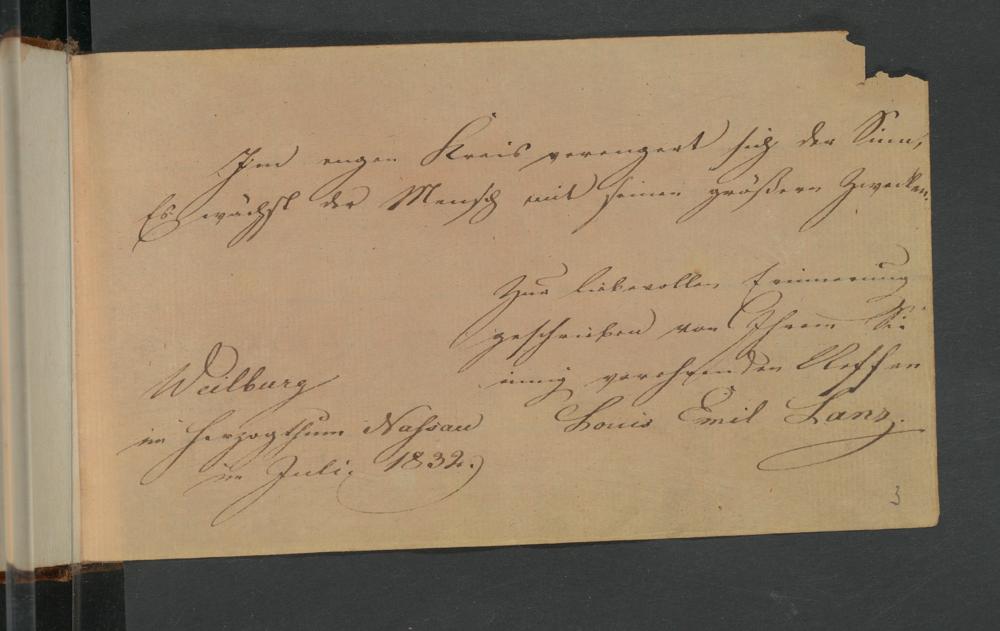 Im engen Kreis verengert sich der Sinn,
Es wächst der Mensch mit seinen größern Zwecken.
Zur liebevollen Erinnerung
geschrieben von Ihrem Sie
innig verehrenden Neffen
Louis Emil Lanz.
Weilburg
im Herzogthum Nassau
im Juli 1832.)
3